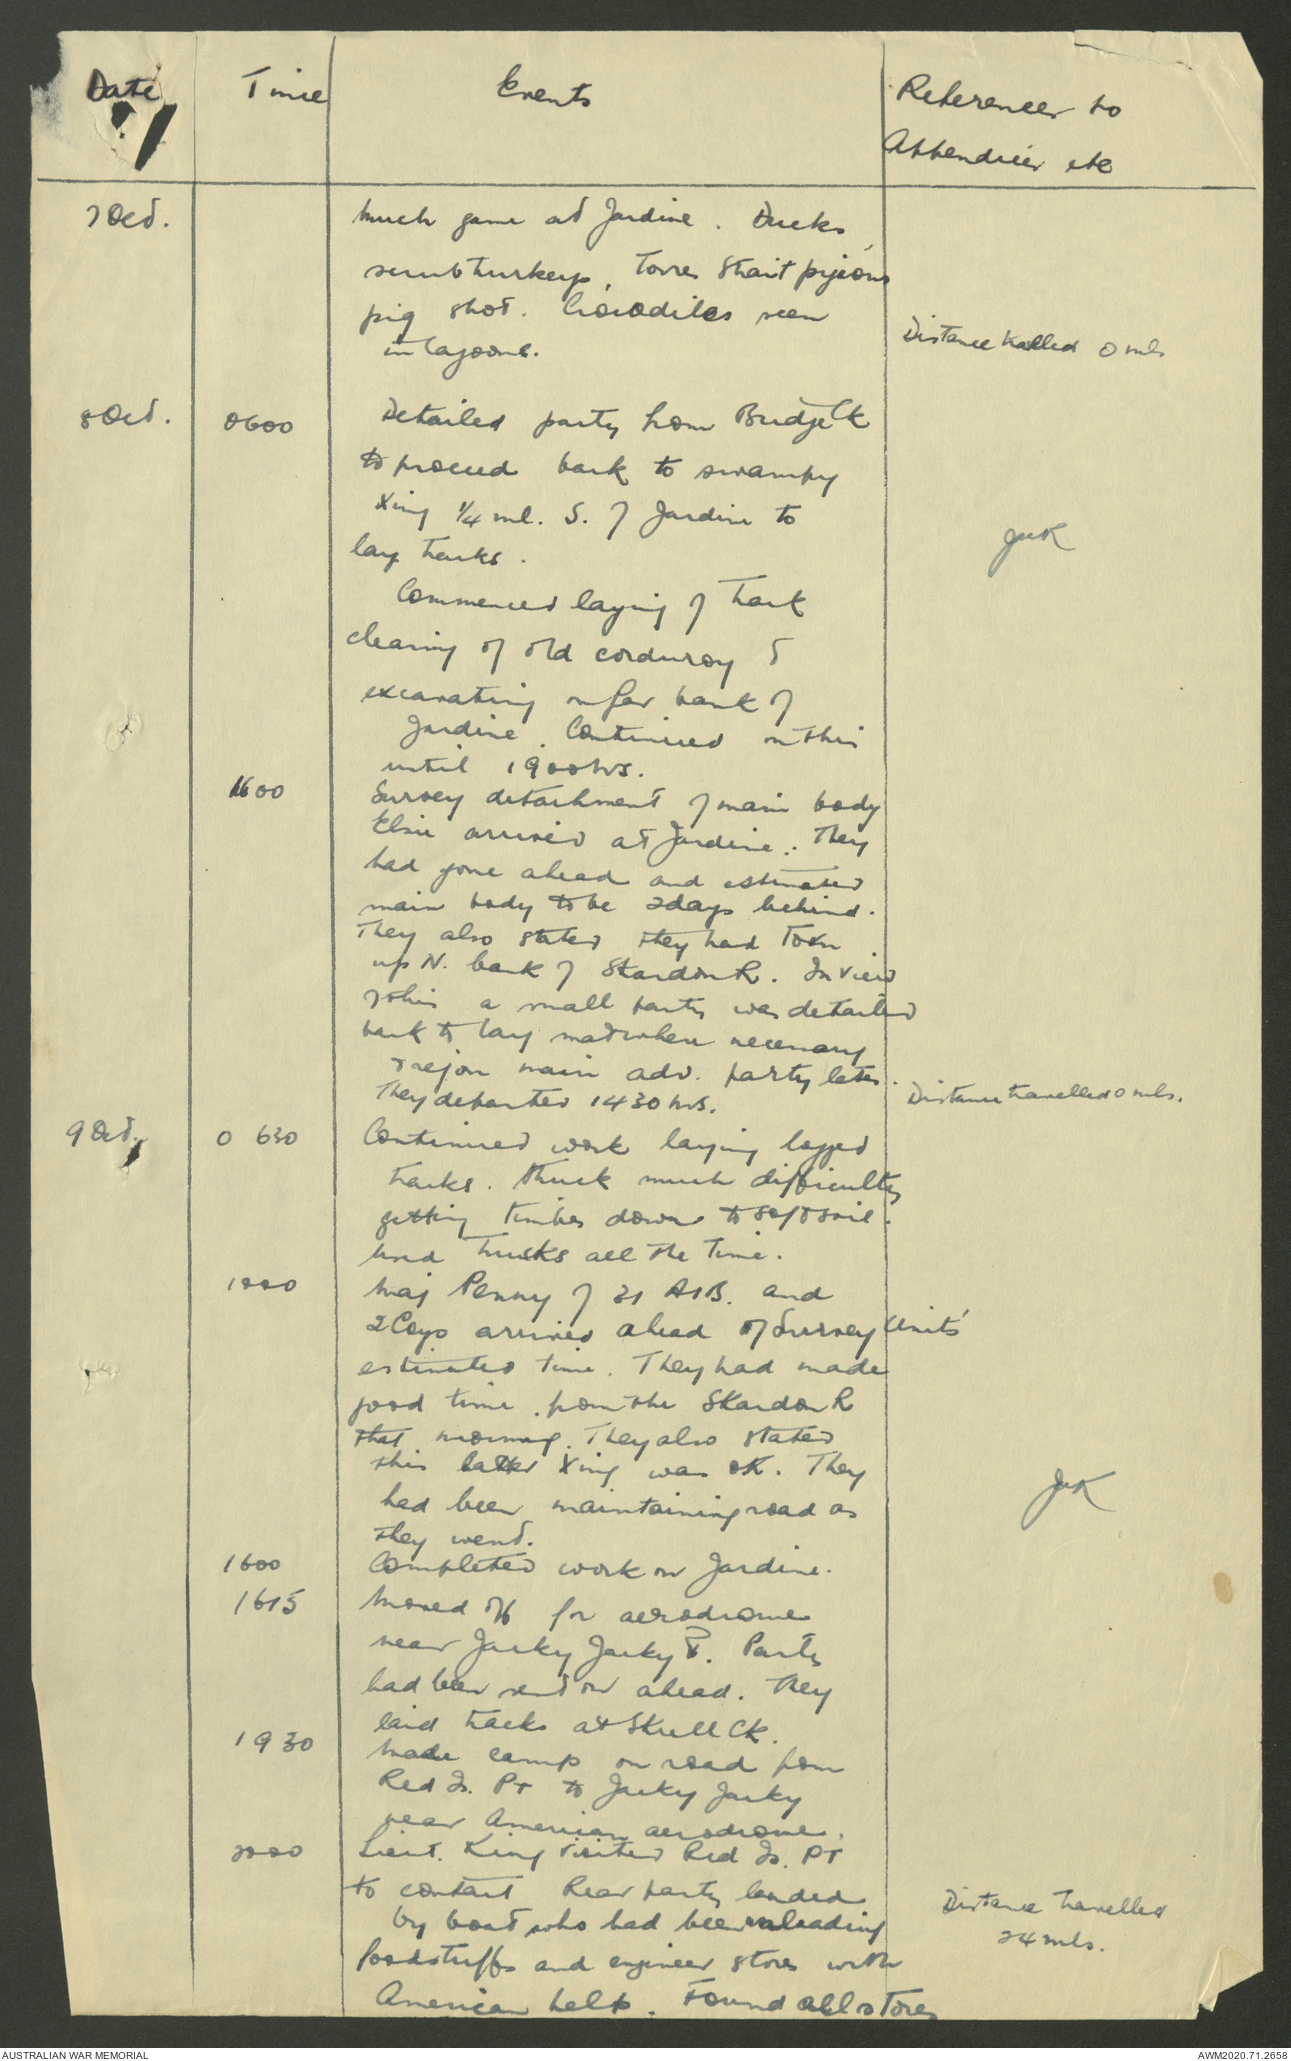 Date
Time
Events
References to
Appendices etc
7 Oct.
Much game at Jardine. Ducks,
scrub turkeys, Torres Strait pigeons
pig shot. Crocodiles seen
in lagoons.
Distance travelled 0 mls
8 Oct.
0600
Detailed party from Bridge Ck
to proceed back to swampy
Xing 1/4 ml. S. of Jardine to
lay tracks.
JWK
Commenced laying of track
clearing of old corduroy &
excavating on far bank of
Jardine. Continued on this
until 1900 hrs.
1600
Survey detachment of main body
Elsie arrived at Jardine. They
had gone ahead and estimated
main body to be 2 days behind.
They also stated they had torn
up N. bank of Skardon R. In view
of this a small party was detailed
back to lay mat where necessary
& rejoin main adv. party later.
They departed 1430 hrs.
Distance travelled 0 mls.
9 Oct.
0630
Continued work laying logged
tracks. Struck much difficulty
getting timber down to soft soil.
Used trucks all the time.
1000
Maj Penny of 31 AIB. and
2 Coys arrived ahead of Survey Units'
estimated time. They had made
good time from the Skardon R
that morning. They also stated
this latter Xing was OK. They
had been maintaining road as
they went.
JWK
1600
Completed work on Jardine.
1615
Moved off for aerodrome
near Jacky Jacky. Party
had been sent on ahead. They
laid tracks at Skull Ck.
1930
Made camp on road from
Red Is. Pt to Jacky Jacky
near American aerodrome.
2000
Lieut. King visited Red Is. Pt
to contact Rear party landed
by boat who had been unloading
foodstuffs and engineer stores with
American help. Found all stores
Distance travelled
24 mls.
AUSTRALIAN WAR MEMORIAL
AWM2020.71.2658